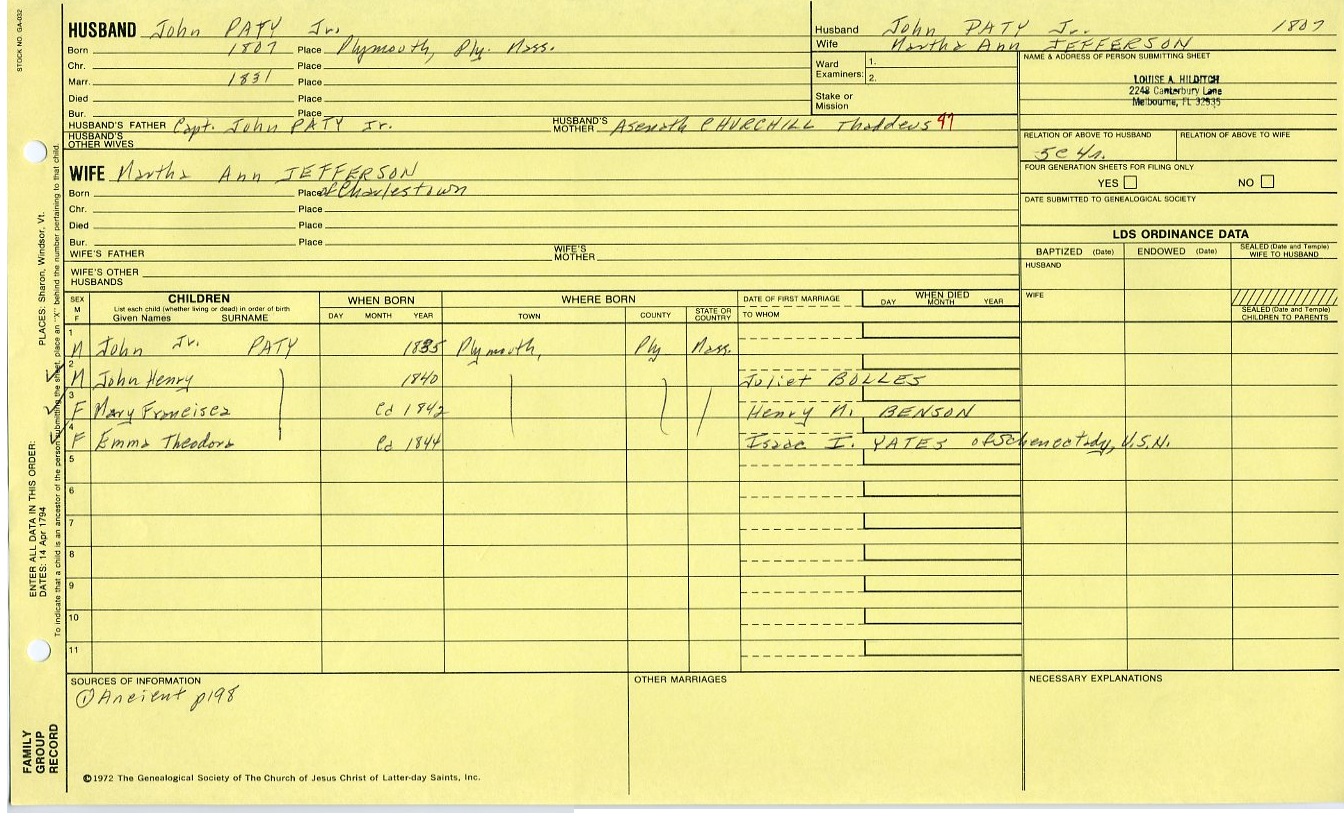 STOCK NO. GA-032
HUSBAND John PATY Jr.
Born 1807 Place Plymouth, Ply. Mass.
Chr. Place
Marr. 1831 Place
Died Place
Bur. Place
HUSBAND'S FATHER Capt. John PATY Jr. HUSBAND'S MOTHER Asenath CHURCHILL Thaddeus 47
HUSBAND'S OTHER WIVES
Husband John PATY Jr. 1807
Wife Martha Ann JEFFERSON
Ward Examiners: 1.
2.
Stake or Mission
NAME & ADDRESS OF PERSON SUBMITTING SHEET
LOUISE A. HILDITCH
2248 Canterbury Lane
Melbourne, FL 32935
RELATION OF ABOVE TO HUSBAND RELATION OF ABOVE TO WIFE
5c 4r.
FOUR GENERATION SHEETS FOR FILING ONLY
YES NO
DATE SUBMITTED TO GENEALOGICAL SOCIETY
WIFE Martha Ann JEFFERSON
Born Place of Charlestown
Chr. Place
Died Place
Bur. Place
WIFE'S FATHER WIFE'S MOTHER
WIFE'S OTHER HUSBANDS
LDS ORDINANCE DATA
BAPTIZED (Date) ENDOWED (Date) SEALED (Date and Temple) WIFE TO HUSBAND
HUSBAND
WIFE
SEALED (Date and Temple) CHILDREN TO PARENTS
SEX M F CHILDREN List each child (whether living or dead) in order of birth Given Names SURNAME WHEN BORN DAY MONTH YEAR WHERE BORN TOWN COUNTY STATE OR COUNTRY DATE OF FIRST MARRIAGE TO WHOM WHEN DIED DAY MONTH YEAR
1 M John Jr. PATY 1835 Plymouth, Ply Mass.
2 M John Henry 1840 Juliet BOLLES
3 F Mary Francisca Cd 1842 Henry M. BENSON
4 F Emma Theodora Cd 1844 Isaac I. YATES of Schenectady, U.S.N.
5
6
7
8
9
10
11
SOURCES OF INFORMATION
① Ancient p198
OTHER MARRIAGES
NECESSARY EXPLANATIONS
©1972 The Genealogical Society of The Church of Jesus Christ of Latter-day Saints, Inc.
FAMILY GROUP RECORD
ENTER ALL DATA IN THIS ORDER:
DATES: 14 Apr 1794 PLACES: Sharon, Windsor, Vt.
To indicate that a child is an ancestor of the person submitting the sheet, place an "X" behind the number pertaining to that child.